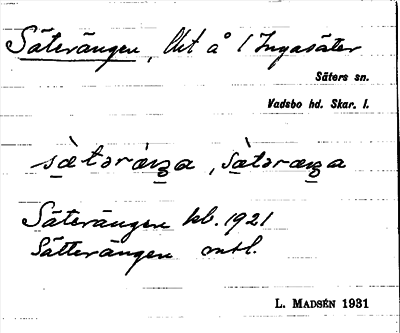 Säterängen, lht å 1 Ingasäter
Säters sn.
Vadsbo hd. Skar. l.
sὰtəræŋa, sὰtəræŋa
Säterängen kb. 1921
Sätterängen mtl.
L. MADSÉN 1931